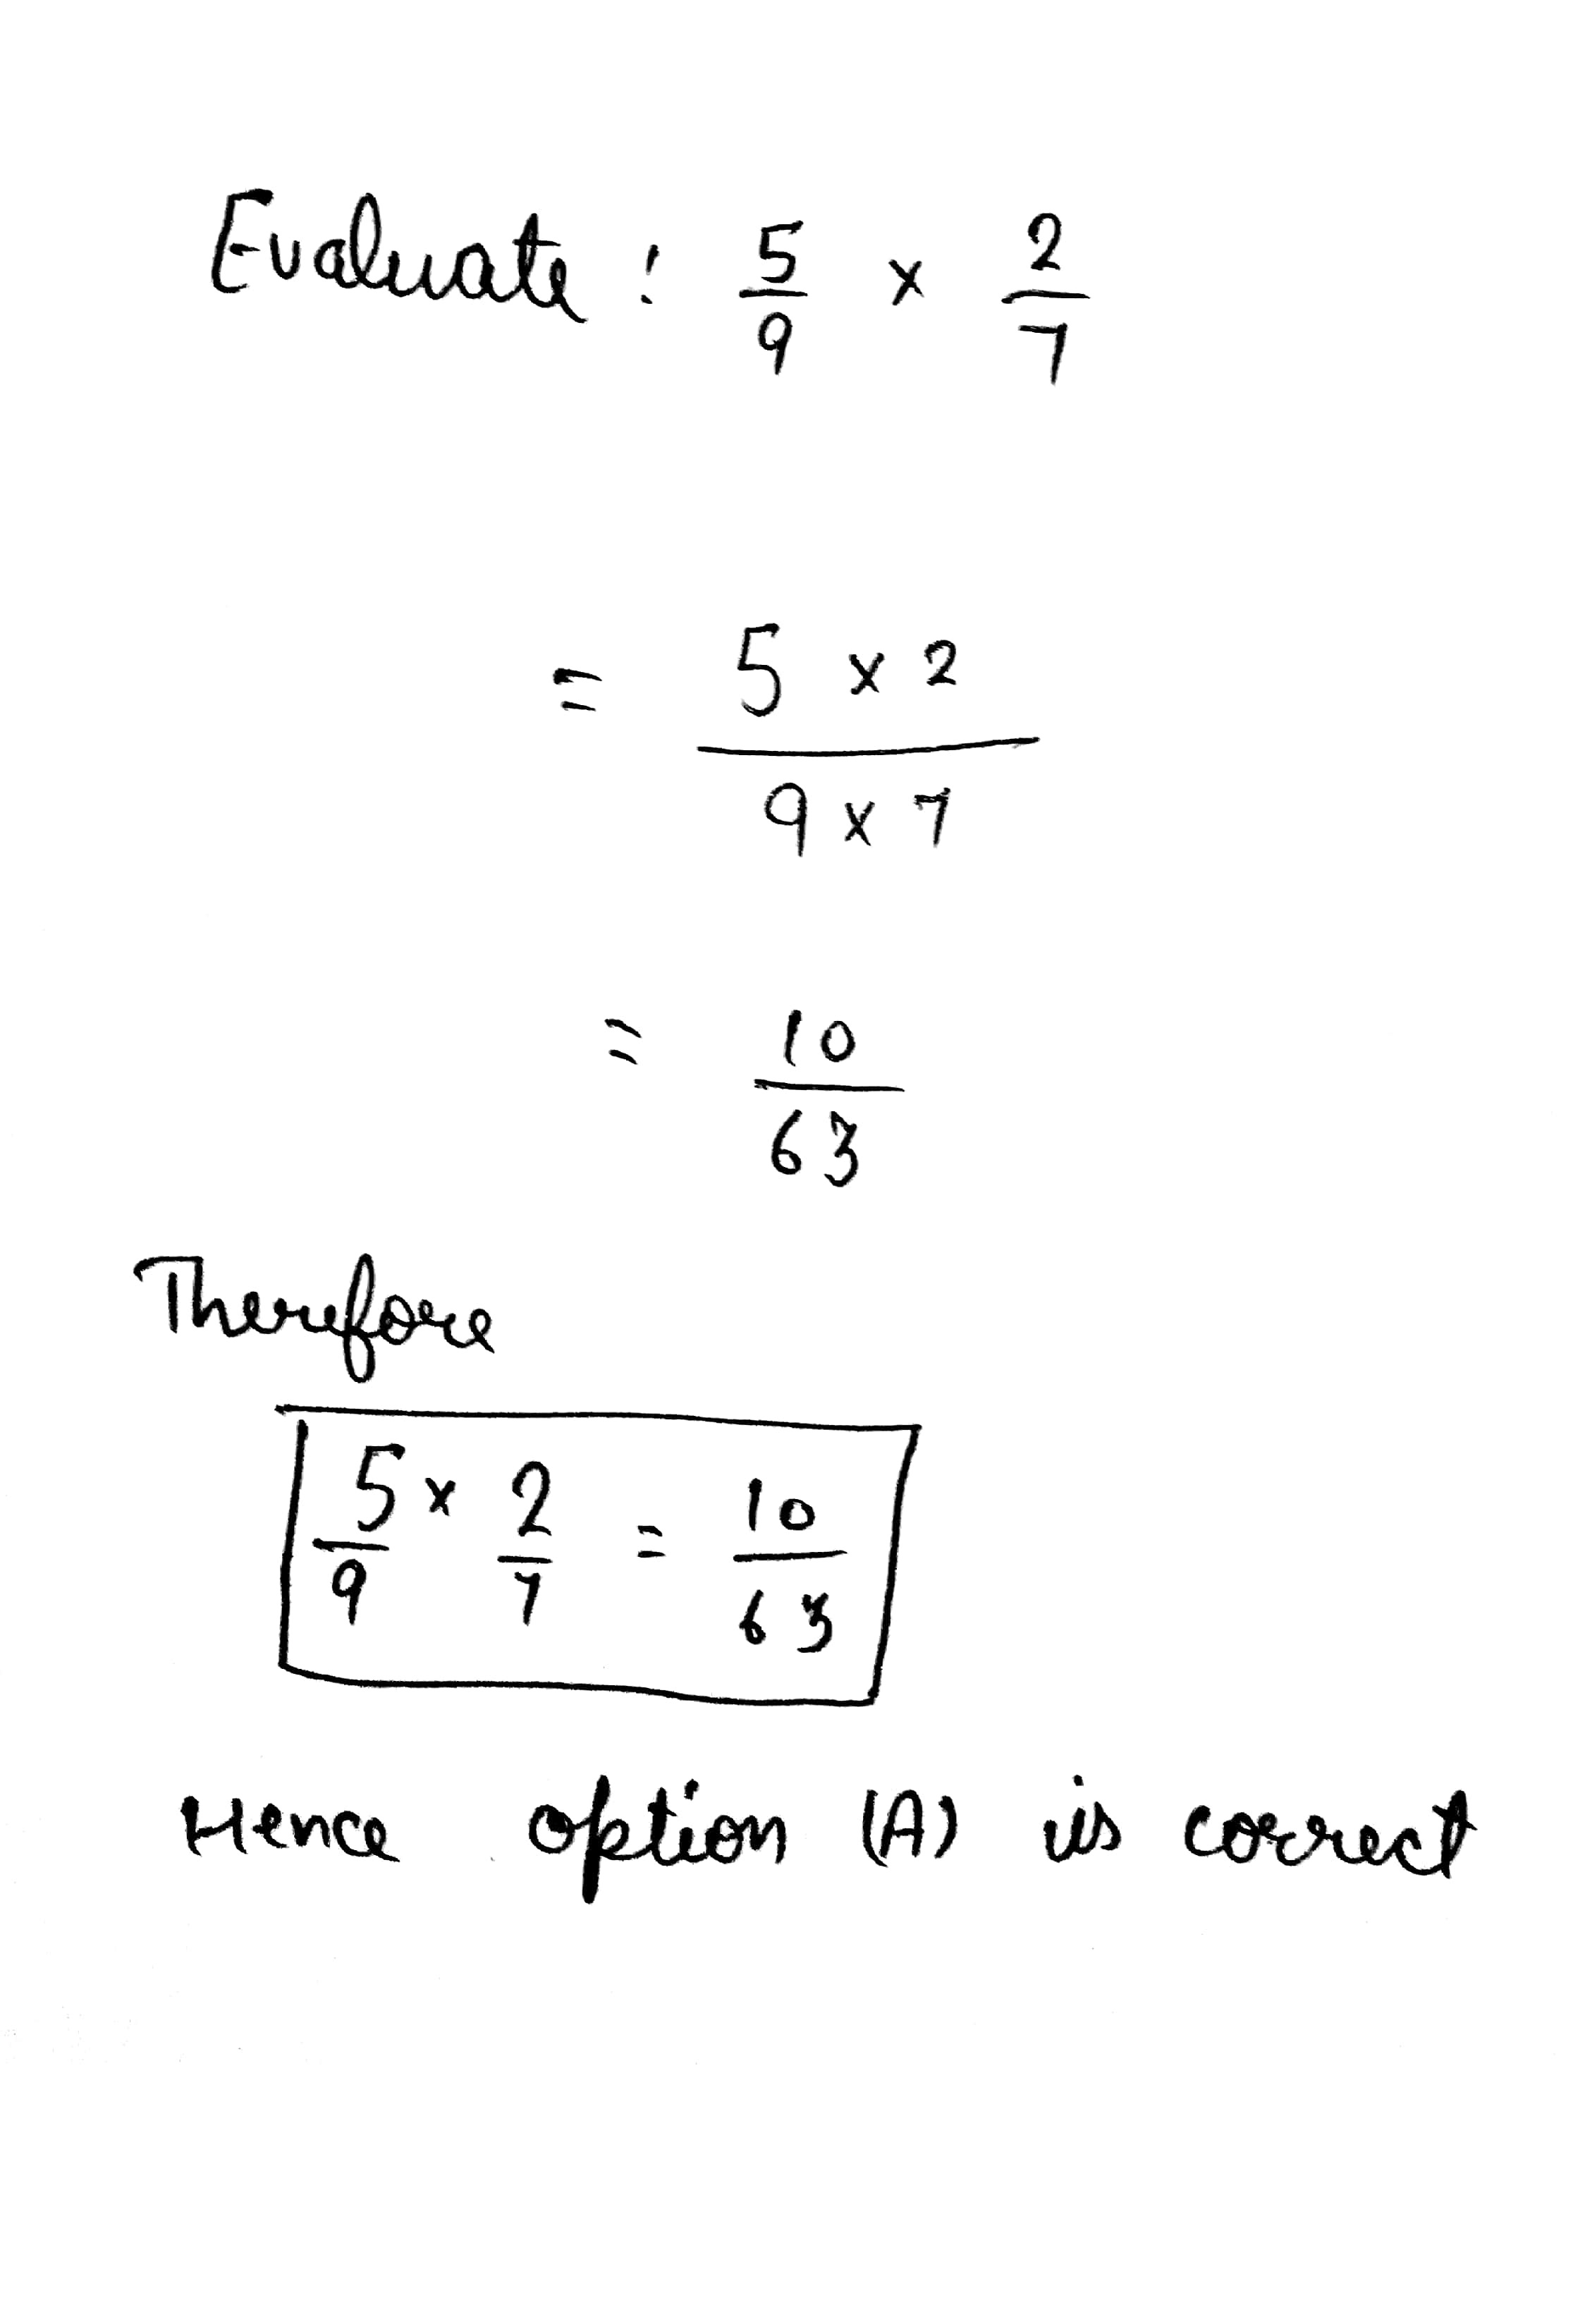 Evaluate : 5/9 × 2/7
= 5 × 2 / 9 × 7
= 10/63
Therefore
5/9 × 2/7 = 10/63
Hence option (A) is correct